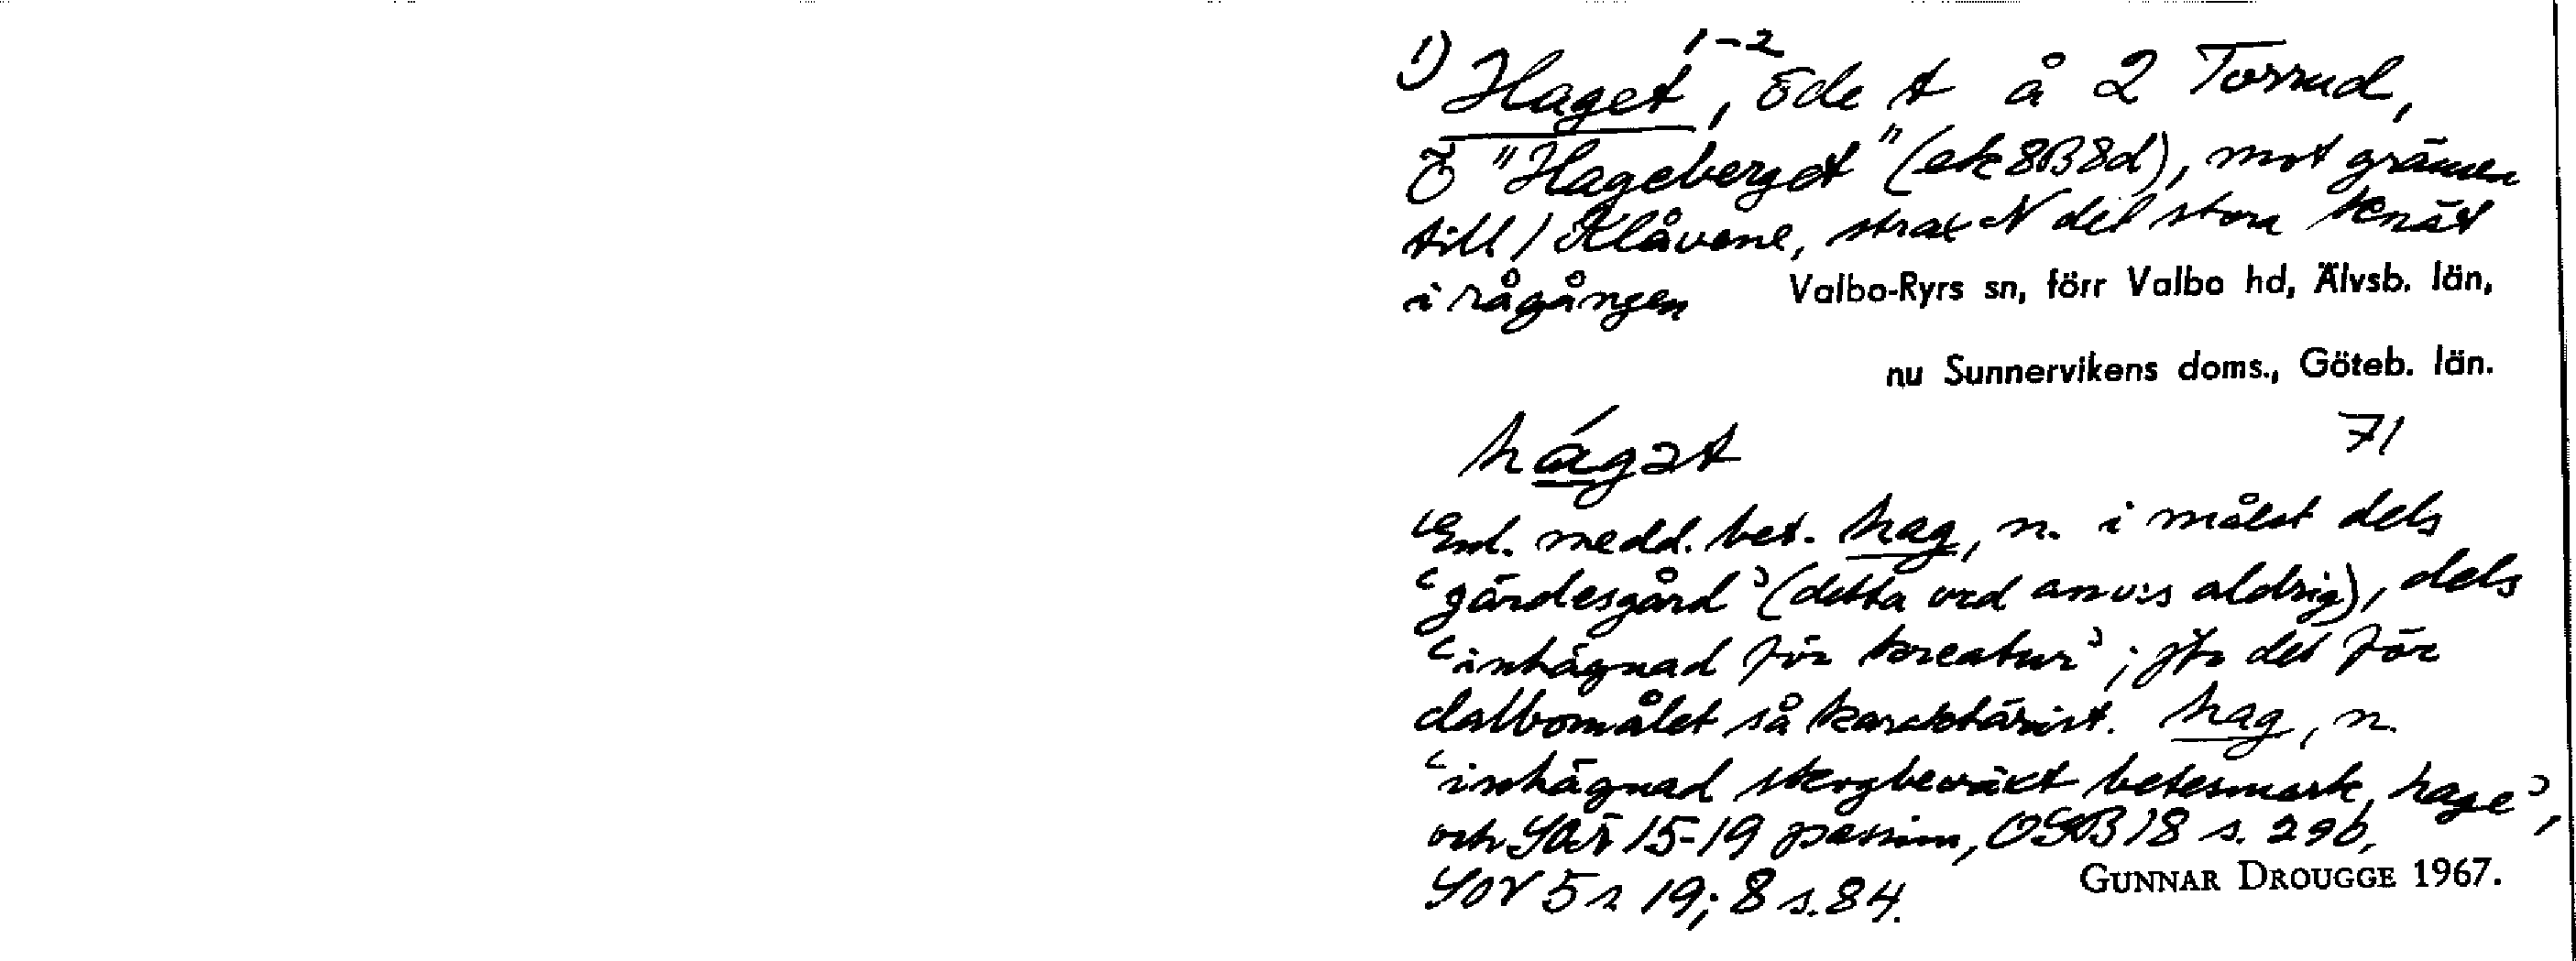 1) Haget 1-2, öde t å 2 Torrud,
Ö "Hageberget" (ek 8B8d), mot gränsen
till 1 Klåvene, strax N det stora knät
i rågången Valbo-Ryrs sn, förr Valbo hd, Älvsb. län,
nu Sunnervikens doms., Göteb. län.
hágət 71
Enl. medd. bet. hag, n. i målet dels
‘gärdesgård’ (detta ord anv:s aldrig), dels
‘inhägnad för kreatur’; jfr det för
dalbomålet så karaktärist. hag, n.
‘inhägnad skogbeväxt betesmark, hage’,
och SOÄ 15-19 passim, OGB 18 s. 296,
SOV 5 s 19; 8 s. 84. GUNNAR DROUGGE 1967.